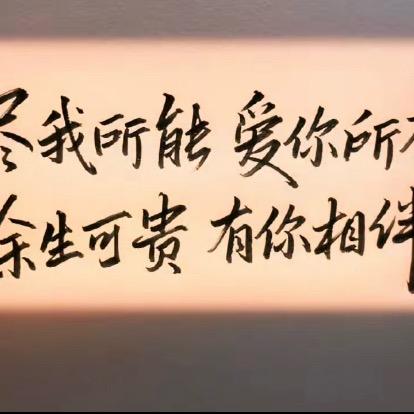 尽我所能 爱你所有
余生可贵 有你相伴